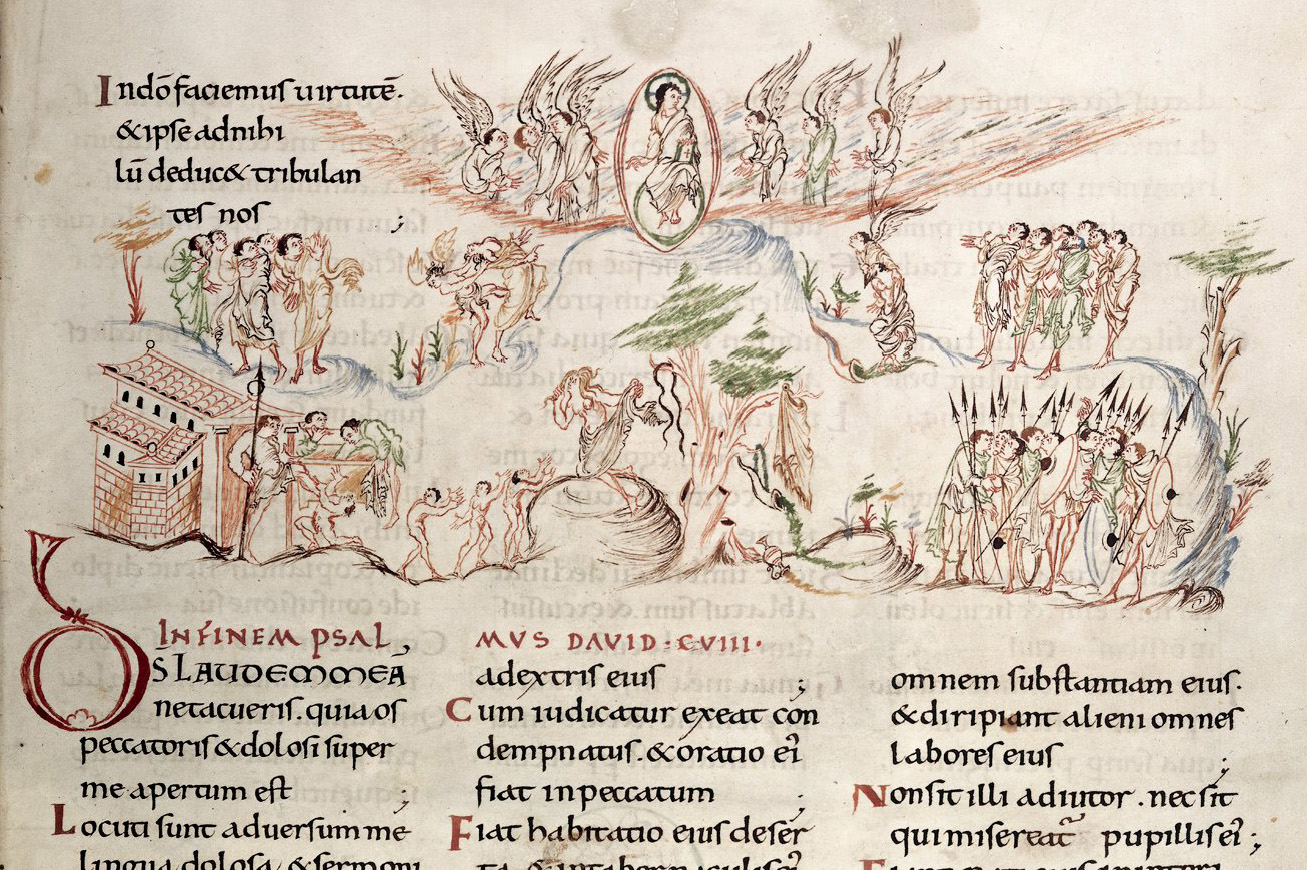 Indō faciemus uirtutē.
&ipse adnihi
lū deduc& tribulan
tes nos ;
IN FINEM PSAL,
DS LAUDEM MEĀ
netacueris. quia os
peccatoris & dolosi super
me apertum est ;
Locuti sunt aduersum me
lingua dolosa, & sermoni
MVS DAVID: CVIII.
adextris eius ;
Cum iudicatur exeat con
dempnatus. & oratio ei
fiat inpeccatum ;
Fiat habitatio eius deser
ta
omnem substantiam eius.
& diripiant alieni omnes
labores eius ;
Non sit illi adiutor. nec sit
qui misereat pupillis ei ;